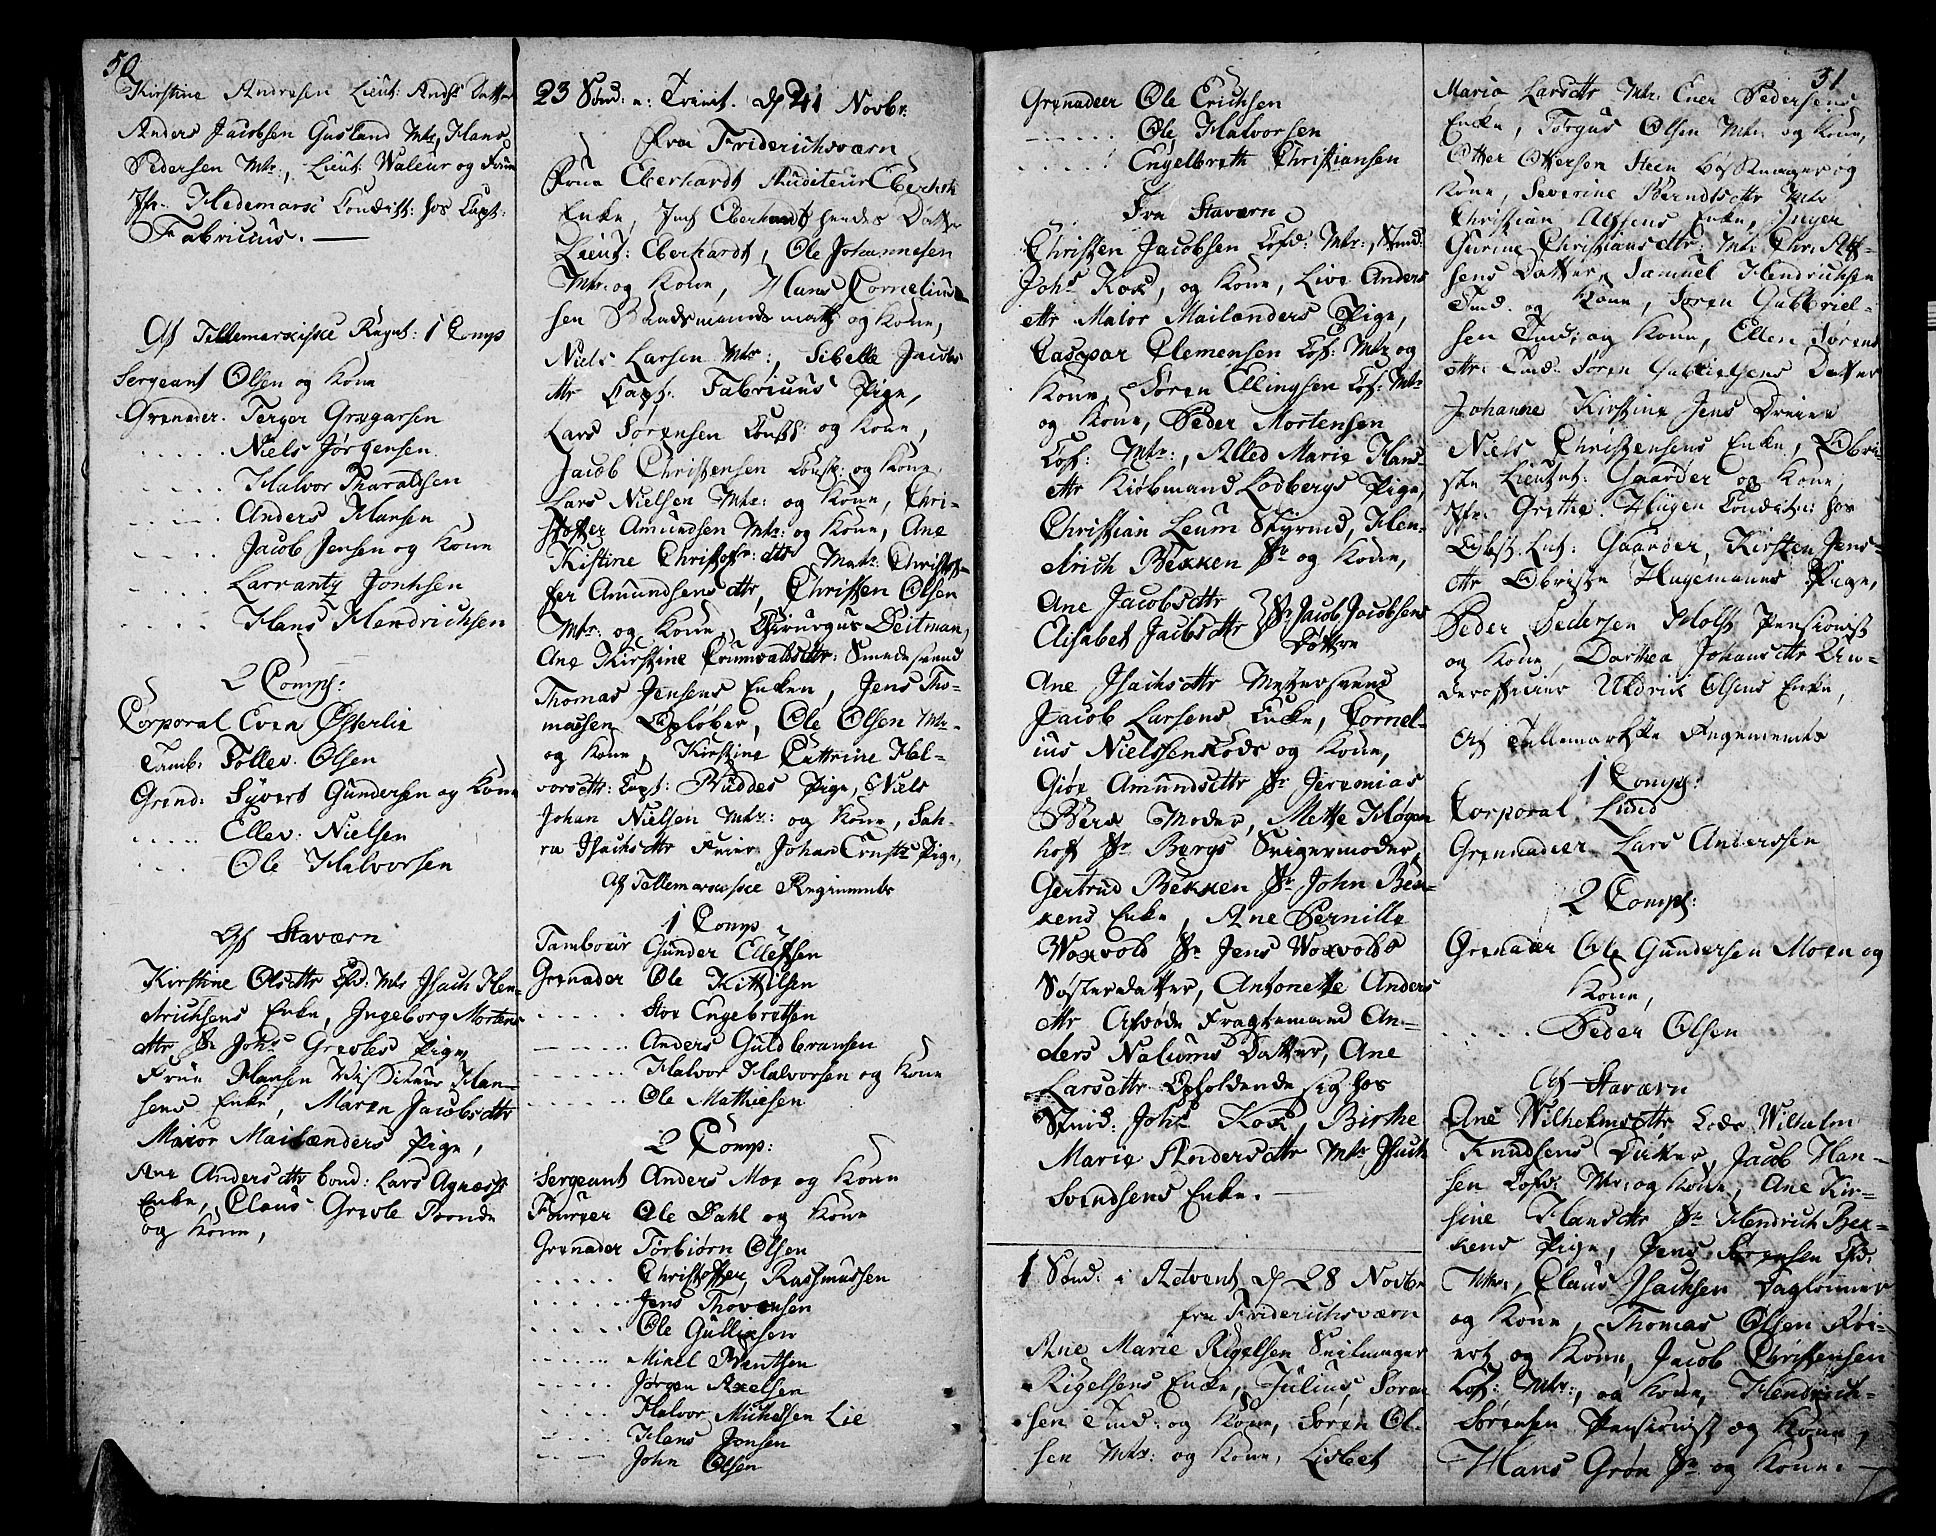 50
Kirstine Andresen Lieut: Andrs Datter
Anders Jacobsen Gusland Mtr, Hans
Pedersen Mtr:, Lieut: Waleur og Frue
Jfr. Hedemark Condit: hos Capt:
Fabricius. —
Af Tellemarkiske Regmt: 1 Comp
Sergeant Olsen og Kone
Grenader. Terger Gregarsen
..... Niels Jørgensen
..... Halvor Tharaldsen
..... Anders Hansen
..... Jacob Jensen og Kone
..... Larrantz Jonhsen
..... Hans Hendrichsen
2 Comp:
Corporal Even Østerlie
Tamb: Tollev Olsen
Grend: Syvert Gundersen og Kone
..... Ellev: Nielsen
..... Ole Halvorsen
Af Staværn
Kirstine Olsdttr Cofd: Mtr Isach Hen-
drichsens Enke, Ingeborg Mortens
dttr Sr Johs Grevles Pige,
Frue Hansen Visiteur Han-
sens Enke, Maren Jacobsdttr
Maior Mailænders Pige,
Ane Andersdttr bond: Lars Agness
Enke, Claus Grevle Bonde
og Kone,
23 Sønd: a: Trinit. d 21 Novbr.
Fra Friderichsværn
Frue Eberhardt Auditeur Eberhdt
Enke, Jmf Eberhardt hendes Datter
Lieut: Eberhardt, Ole Johannesen
Mtr: og Kone, Hans Cornelius-
sen Baadsmandsmath og Kone,
Niels Larsen Mtr:, Sibelle Jacobs
dttr Capt: Fabricius Pige,
Lars Sørensen Const: og Kone,
Jacob Christensen Const: og Kone
Lars Nielsen Mtr: og Kone, Chri-
stoffer Amundsen Mtr: og Kone, Ane
Kistine Christofr: dttr Matr: Christof-
fer Amundsens dttr, Christen Olsen
Mtr: og Kone, Chirurgus Deitman,
Ane Kirstine Trumvaldsdttr: Smedesvend
Thomas Jensens Enken, Jens Tho-
masen Opløber, Ole Olsen Mtr.
og Kone, Kirstine Cattrine Hal-
vorsdttr: Capt: Buddes Pige, Niels
Johan Nielsen Mtr: og Kone, Sah-
ra Isachsdttr Feier Johan Ernsts Pige,
Af Tellemarkiske Regiments
1 Comp
Tambour Gunder Ellefsen
Grenader Ole Kittilsen
..... Stor Engebretsen
..... Anders Guldbransen
..... Halvor Halvorsen og Kone
..... Ole Mathiesen
2 Comp:
Sergeant Anders Moe og Kone
Fourer Ole Dahl og Kone
Grenader Torbiørn Olsen
..... Christoffer Rassmussen
..... Jens Thovensen
..... Ole Gulliksen
..... Mikel Berntsen
..... Jørgen Axelsen
..... Halvor Mickelsen Lie
..... Hans Jensen
..... John Olsen
Grenadeer Ole Erichsen
..... Ole Halvorsen
..... Engelbreth Christiansen
Fra Staværn
Christen Jacobsen Cofd: Mtr:, Skind:
Johs Kok, og Kone, Live Anders
dttr Maior Mailænders Pige,
Caspar Clemensen Cof: Mtr og
Kone, Søren Ellingsen Cof: Mtr
og Kone, Peder Mortensen
Cof: Mtr:, Alled Marie Hans-
dttr Kiøbmand Lodbergs Pige,
Christian Leum Styrmd, Hen-
drich Bekken Sr og Kone,
Ane Jacobsdttr } Sr Jacob Jacobsens
Elisabet Jacobsdttr Døttre
Ane Isachsdttr Mestersvend
Jacob Larsens Enke, Cornel-
ius Nielssens Lods og Kone,
Giøe Amundsdttr Sr Jeremias
Berx Moder, Mette Høgen
hof Sr Bergs Svigermoder,
Gertrud Bekken Sr John Bek-
kens Enke, Ane Pernille
Woxvold Sr Jens Woxvolds
Søsterdatter, Antonette Anders
dttr Afdøde Fragtemand An-
ders Naliums Datter, Ane
Larsdttr Opholdende sig hos
Skind: Johs Kok, Birthe
Marie Andersdttr Mtr Isach
Svendsens Enke. —
1 Sønd: i Advent d 28 Novbr
fra Friderichsværn
Ane Marie Rigelsen Seilmager
Rigelsens Enke, Julius Soren
sen Tind: og Kone, Søren Ol-
sen Mtr: og Kone, Lisbet
51
Maria Larsdttr Mtr: Ener Pedersens
Enke, Torgus Olsen Mtr og Kone,
Otter Ottersen Steen Bøssemager og
Kone, Severine Berndtsdttr Mtr
Christian Alfsens Enke, Inger
Gurine Christiansdttr: Mtr Chr: Alf-
sens Datter, Samuel Hendrichsen
Tind. og Kone, Søren Gabbriel-
sen Tind: og Kone, Ellen Sørens
dttr: Tind: Søren Gabrielsens Datter
Johanne Kirstine Jens Dreier
Niels Christensens Enke, Obri-
ste Lieutnt: Gaarder og Kone,
Jfr. Grethe Hügen Condit: hos
Obst. Lut: Gaarder, Kirsten Jens-
dttr Obriste Hagemanns Pige,
Peder Pedersen Holst Pensionist
og Kone, Dorthea Johansdttr Un-
derofficier Uldrik Olsens Enke,
Af Tellemarkske Regiments
1 Comp:
Corporal Lund
Grenadeer Lars Anderssen
2 Comp:
Grenader Ole Gundersen Moen og
Kone,
..... Peder Olsen
Af Staværn
Ane Wilhelmsdttr Lods Wilhelm
Knudsens Datter, Jacob Han-
sen Cofd: Mtr: og Kone, Ane Kir-
stine Hansdttr Sr Hendrich Bek-
kens Pige, Jens Sørensen Cfd:
Mtr:, Claus Isachsen Daglønner
og Kone, Thomas Olsen Røi-
ert og Kone, Jacob Christensen
Cof: Mtr:, og Kone, Hendrich
Sørensen Pensionist og Kone,
Hans Grøn Sr og Kone. —